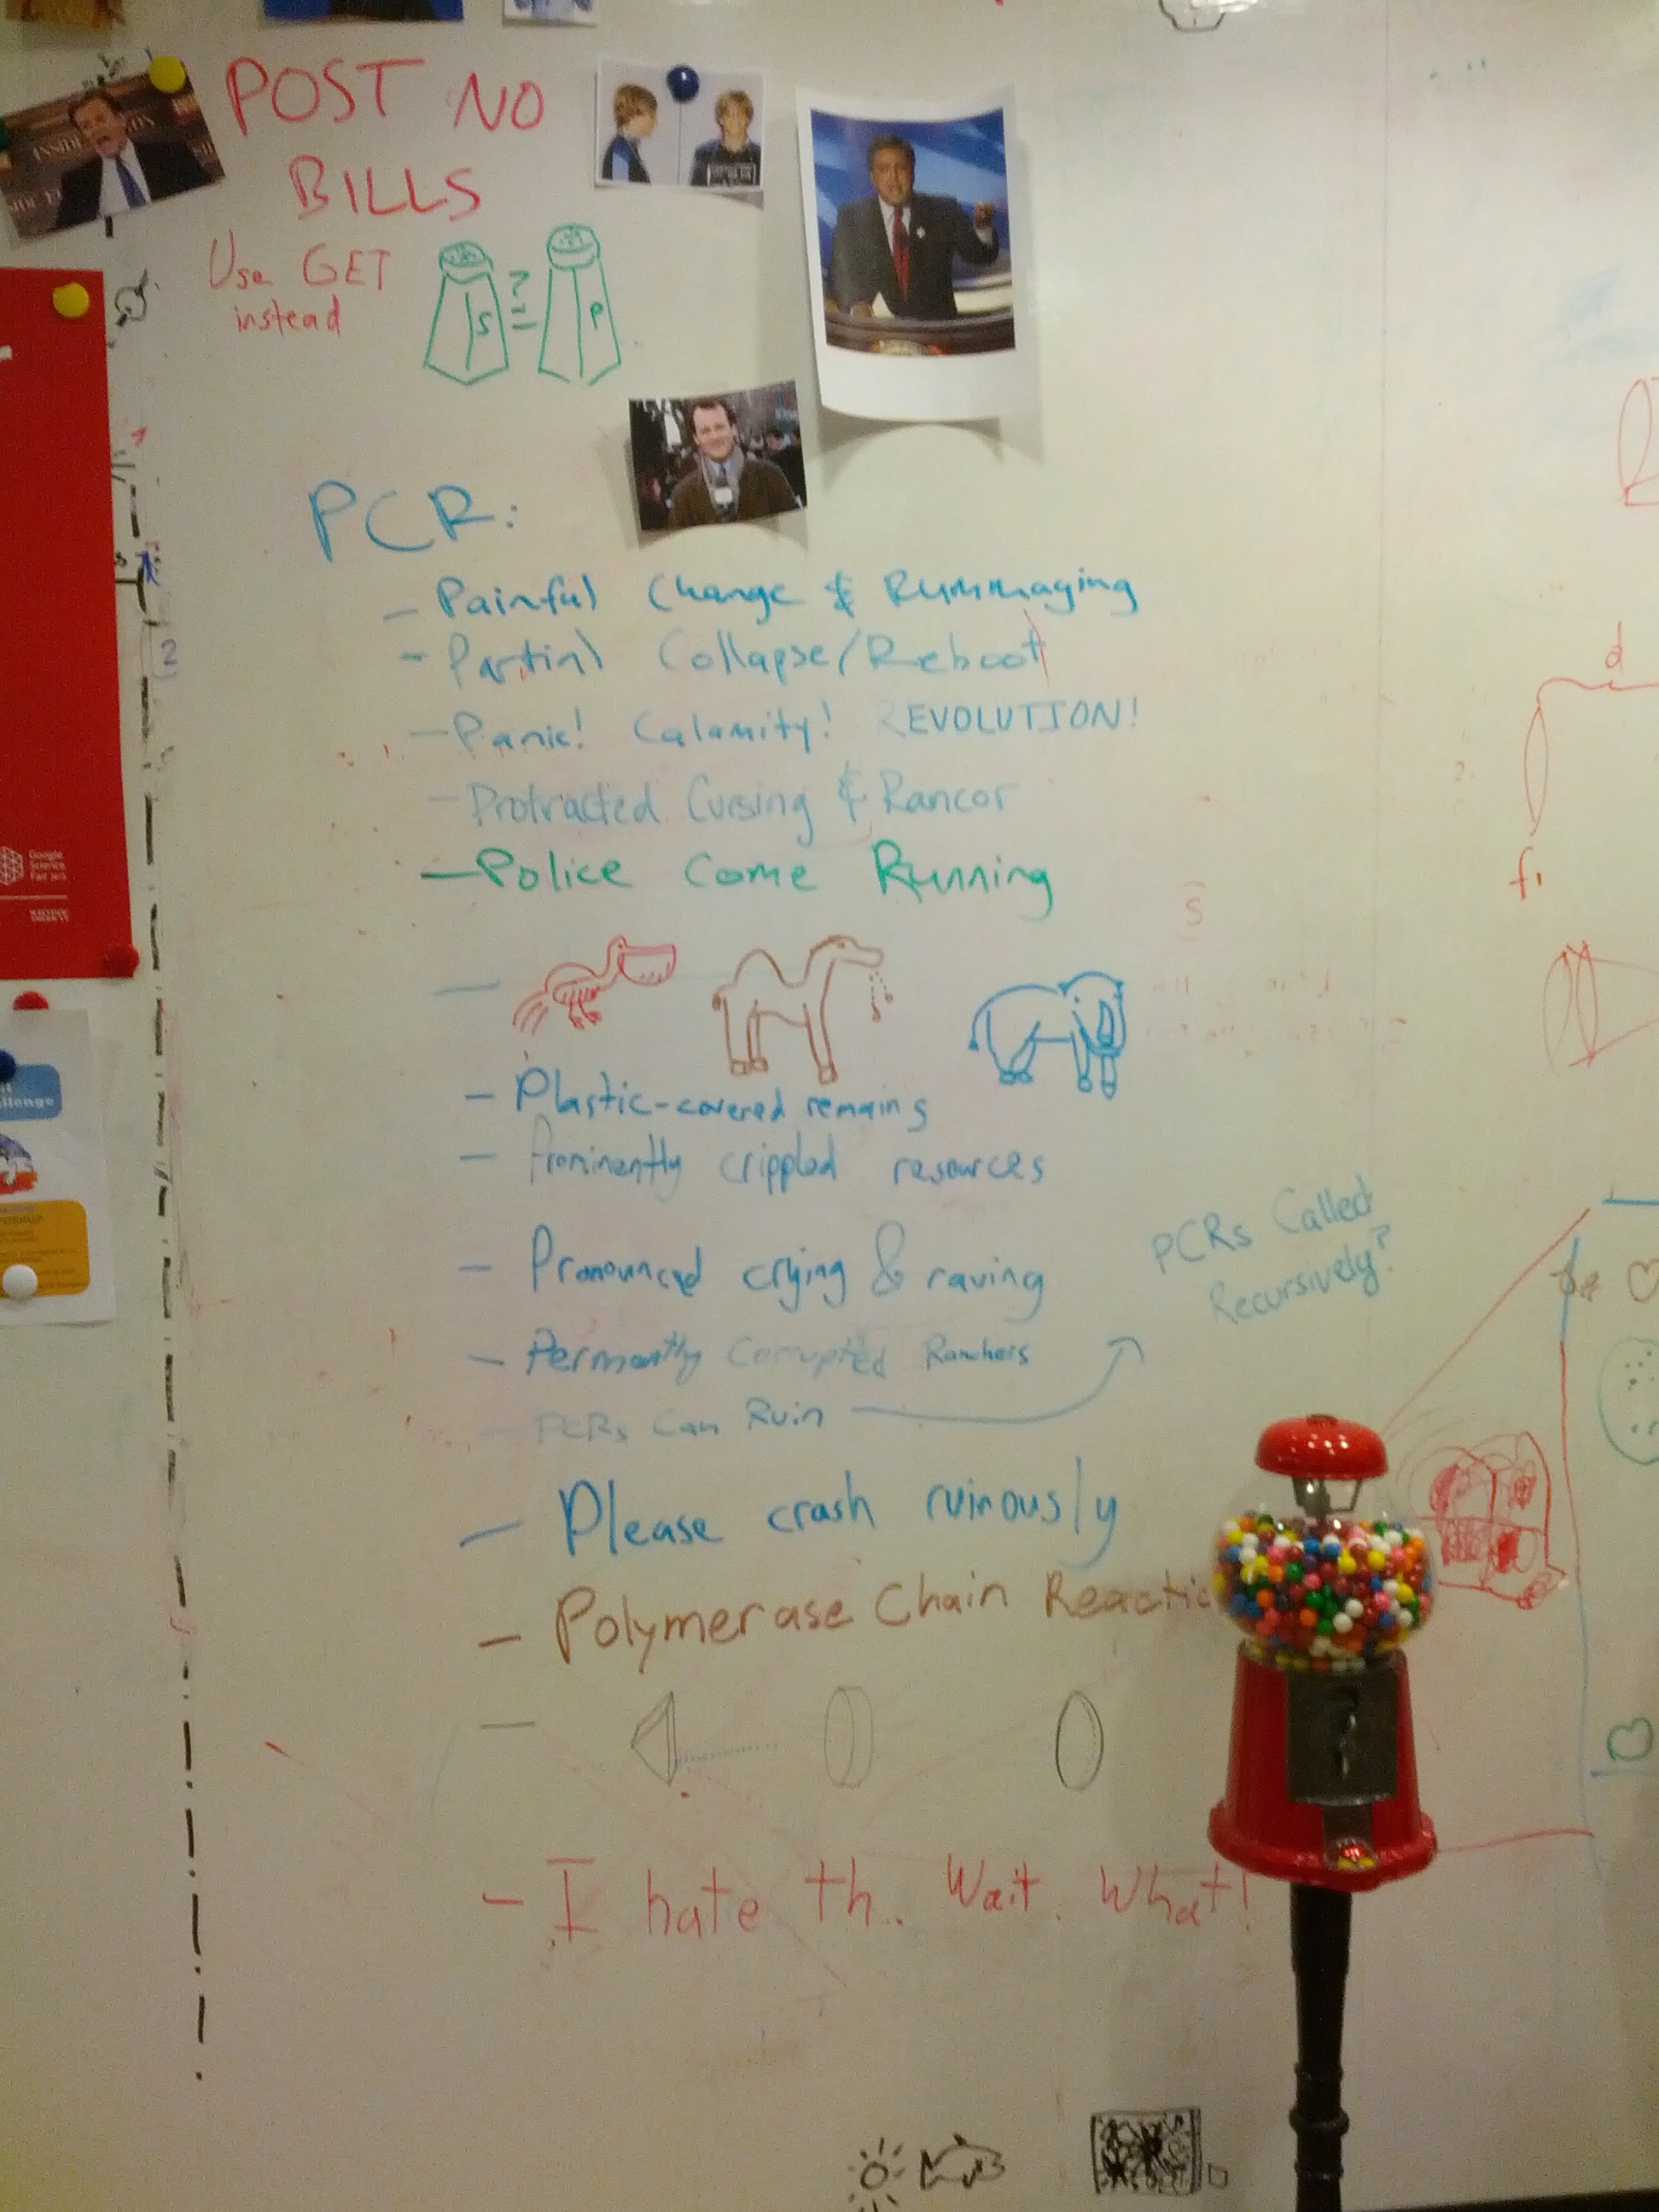 POST NO
BILLS
Use GET
instead
S ?= P
PCR:
- Painful Change & Rummaging
- Partial Collapse/Reboot
- Panic! Calamity! REVOLUTION!
- Protracted Cursing & Rancor
- Police Come Running
- Plastic-covered remains
- Prominently crippled resources
- Pronounced crying & raving
- Permantly Corrupted
- PCRs Can Ruin
PCRs Called
Recursively?
- Please crash ruinously
- Polymerase Chain Reactio
- I hate th.. Wait. What!
Google
Science
Fair
llenge
INSIDE
2
S
d
f1